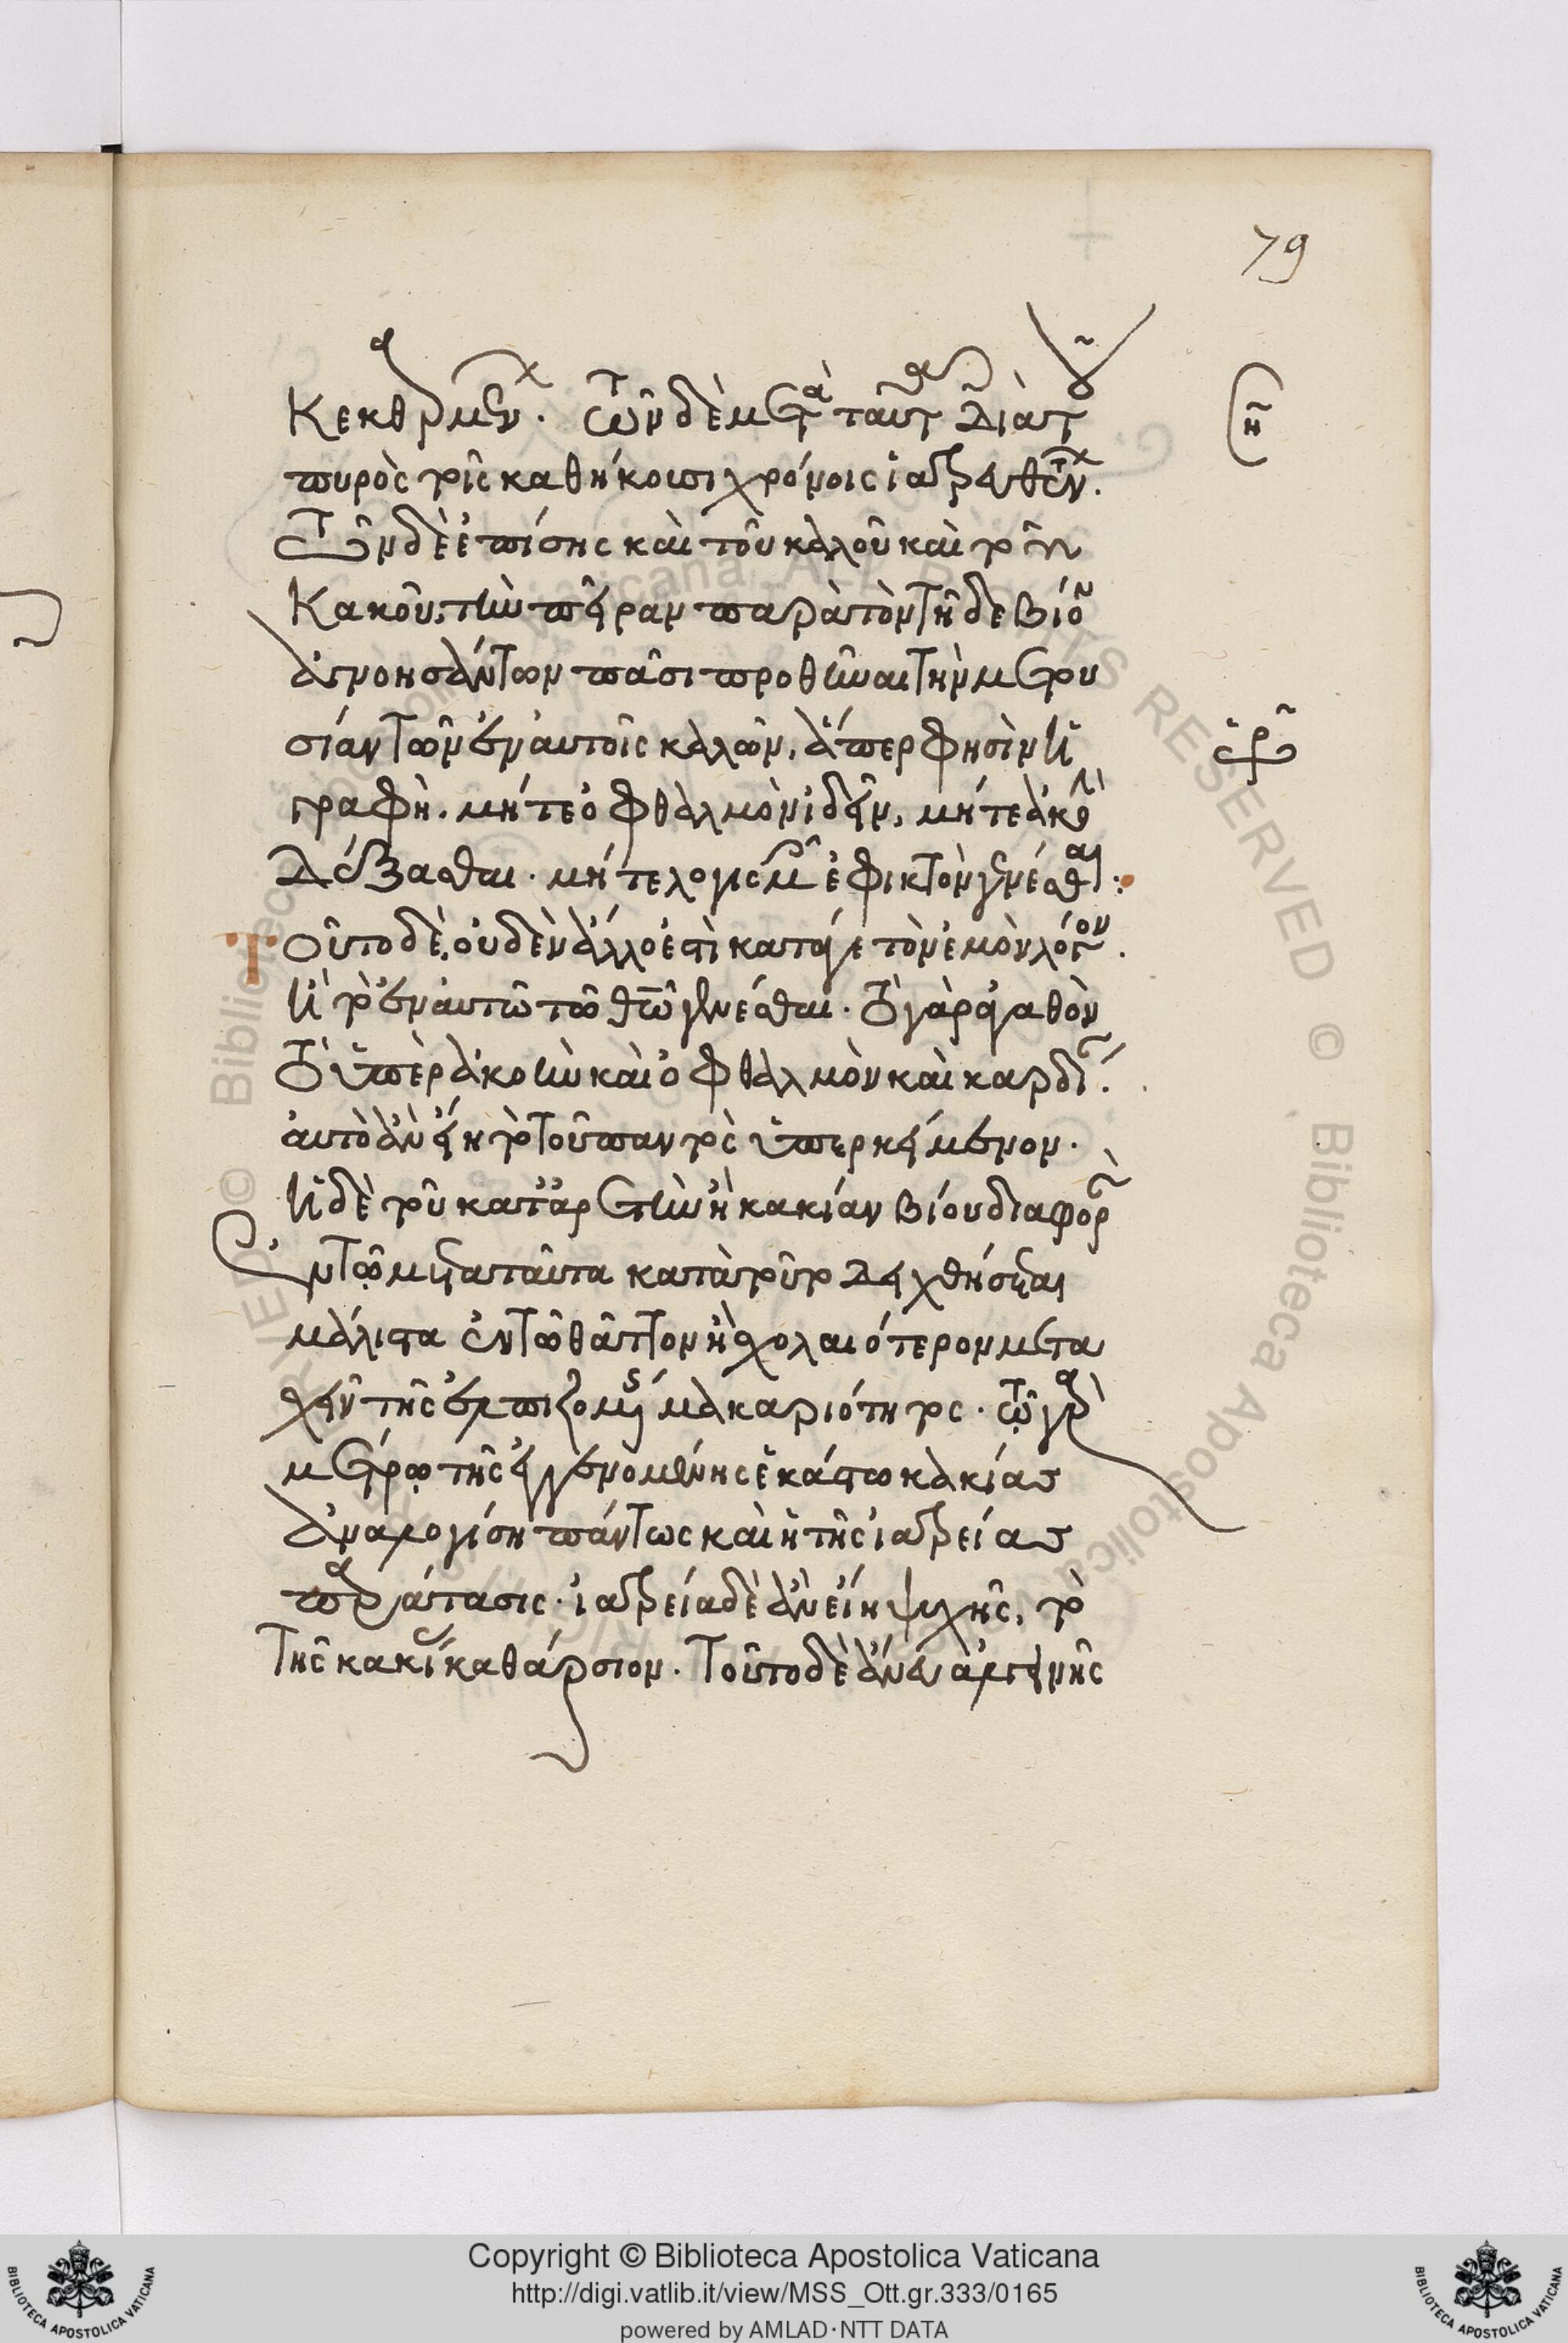 79
κεκαθαρμένων. τῶν δὲ μετὰ ταῦτα διὰ τοῦ
πυρὸς τοῖς καθήκουσι χρόνοις ἰατρευθέντων.
τῶν δὲ ἐπίσης καὶ τοῦ καλοῦ καὶ τοῦ
κακοῦ, τὴν πεῖραν παρὰ τὸν τῇδε βίον
ἀγνοησάντων πᾶσι προθεῖναι τὴν μετου
σίαν τῶν ἐν αὐτοῖς καλῶν, ἅπερ φησὶν ἡ
γραφὴ. μήτε ὀφθαλμὸν ἰδεῖν, μήτε ἀκοὴν
δέξασθαι. μήτε λογισμοῖς ἐφικτὸν γενέσθαι:
Τοῦτο δὲ, οὐδὲν ἄλλο ἐστὶ κατά γε τὸν ἐμὸν λόγον.
ἢ τὸ ἐν αὐτῷ τῷ θεῷ γενέσθαι. τὸ γὰρ ἀγαθὸν
τὸ ὑπὲρ ἀκοὴν καὶ ὀφθαλμὸν καὶ καρδίαν.
αὐτὸ ἂν εἴη τὸ τοῦ παντὸς ὑπερκείμενον.
ἡ δὲ τοῦ κατ' ἀρετὴν ἢ κακίαν βίου διαφορὰ
ἐν τῷ μετὰ ταῦτα κατὰ τοῦτο δειχθήσεται
μάλιστα ἐν τῷ θᾶττον ἢ σχολαιότερον μετα
σχεῖν τῆς ἐλπιζομένης μακαριότητος. τῷ γὰρ
μέτρῳ τῆς ἐγγενομένης ἑκάστῳ κακίας
ἀναλογίση πάντως καὶ ἡ τῆς ἰατρείας
παράτασις. ἰατρεία δὲ ἂν εἴη ψυχῆς, τὸ
τῆς κακίας καθάρσιον. τοῦτο δὲ ἄνευ ἀλγεινῆς
Copyright © Biblioteca Apostolica Vaticana
http://digi.vatlib.it/view/MSS_Ott.gr.333/0165
powered by AMLAD·NTT DATA